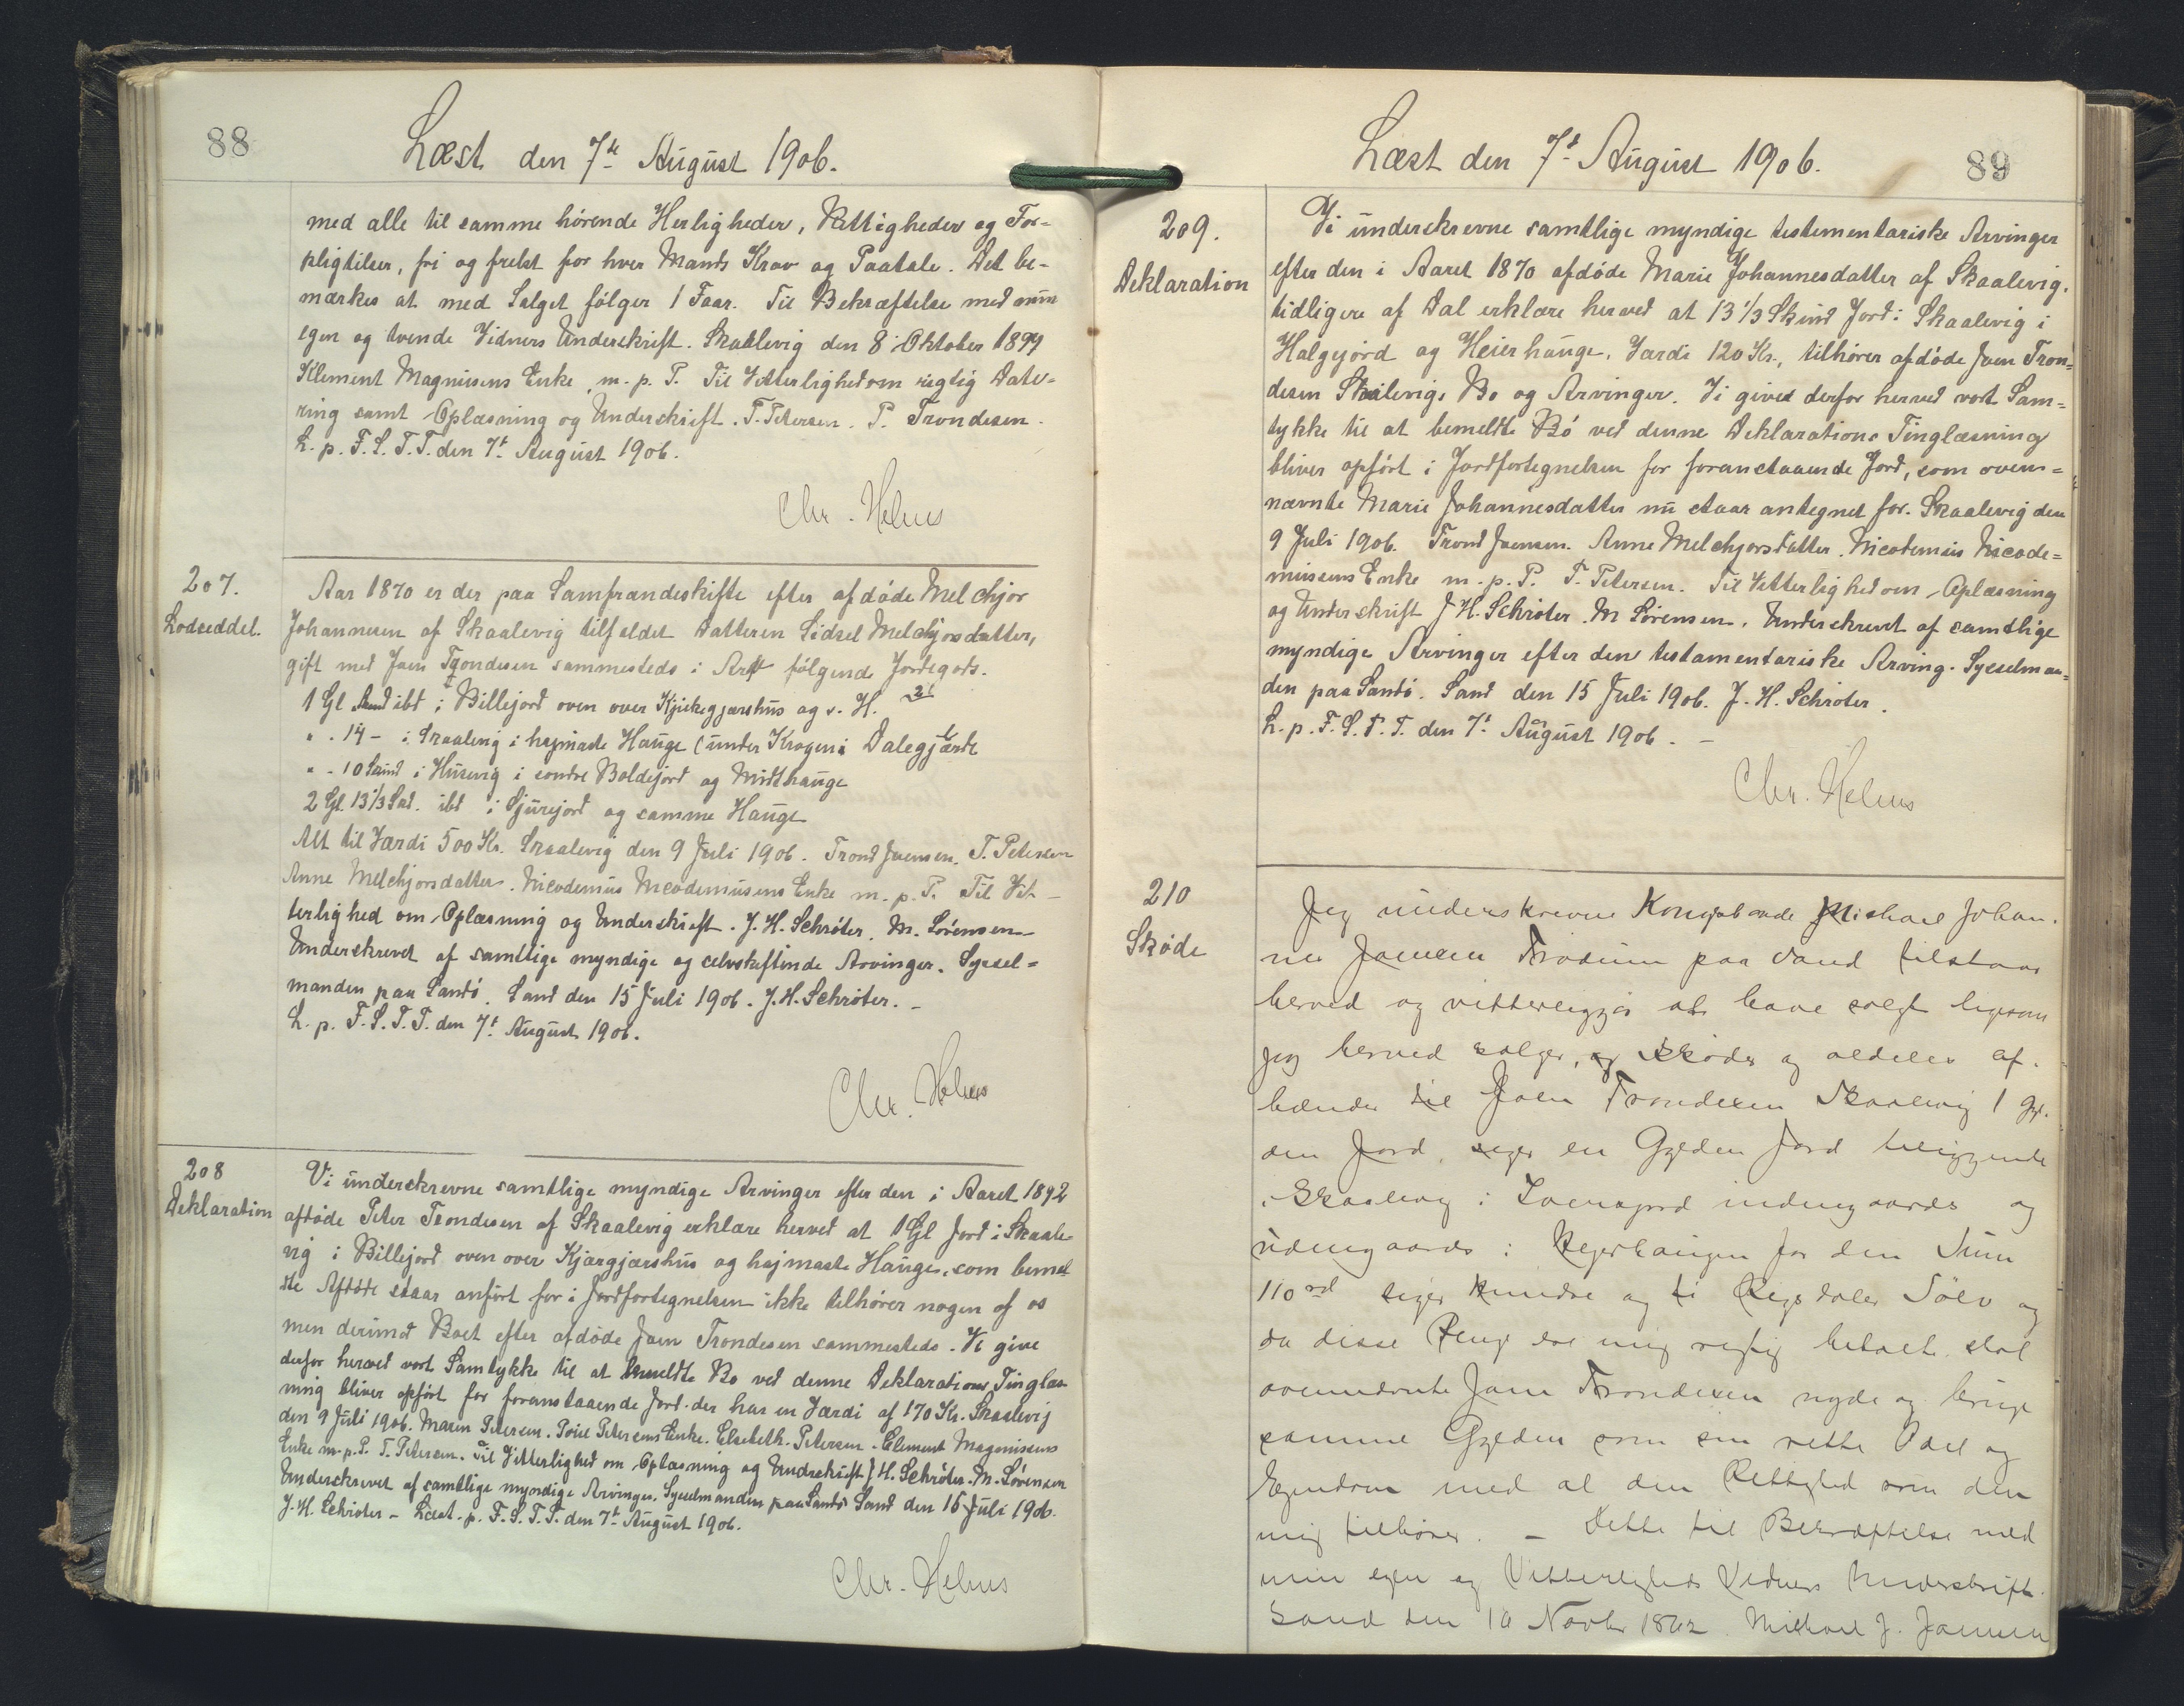 88
Læst den 7de August 1906.
med alle til samme hörende Herligheder, Rettigheder og For=
pligtilser, fri og frelst for hver Mands Krav og Paatale. Det be-
mærkes at med Salget fölger 1 Faar. Til Bekræftelse med min
egen og tvende Vidners Underskrift. Skaalevig den 8 Oktober 1899
Klement Magnusens Enke m. p. P. Til Vitterlighed om rigtig Date=
ring samt Oplæsning og Underskrift. T. Petersen. P. Trondesen.
L. p. F. S. T. T. den 7t August 1906.
Chr. Helms
207.
Lodseddel.
Aar 1870 er der paa Samfrændeskifte efter afdöde Melchjor
Johannesen af Skaalevig tilfaldet Datteren Sidsel Melchjorsdatter,
gift med Joen Trondesen sammesteds i Arv fölgende Jordegods.
1 Gl ibt i Billejord oven over Kjirkegjærshus og v. H.
" . 14 - i Skaalevig i hajmaste Hauge (under Krogen i Dalegjærde
" - 10 Skind i Husevig i söndre Boldejord og Midthauge
2 Gl. 13 1/3 Skd. ibt i Gjurejord og samme Hauge
Alt til Værdi 500 Kr. Skaalevig den 9 Juli 1906. Trond Joensen. T. Petersen
Anne Melchjorsdatter. Nicodemus Nicodemusens Enke m. p. P. Til Vit-
terlighed om Oplæsning og Underskrift. J. H. Schröter. M. Sörensen
Underskrevet af samtlige myndige og selvskiftende Arvinger. Syssel=
manden paa Sandö. Sand den 15 Juli 1906. J. H. Schröter. -
L. p. F. S. T. T. den 7t August 1906.
Chr. Helms
208
Deklaration
Vi underskrevne samtlige myndige Arvinger efter den i Aaret 1892
afdöde Peter Trondesen af Skaalevig erklære herved at 1 Gl Jord i Skaale-
vig i Billejord oven over Kjærgjærshus og hajmaste Hauge, som bemel
dte Afdöde staar anfört for i Jordfortegnelsen ikke tilhörer nogen af os
men derimod Boet efter afdöde Joen Trondesen sammesteds. Vi give
derfor herved vort Samtykke til at bemeldte Bo ved denne Deklarations Tinglæs
ning bliver opfört for foranstaaende Jord der har en Værdi af 170 Kr. Skaalevig
den 9 Juli 1906. Maren Petersen. Poul Petersens Enke. Elsebeth. Petersen. Clement Magnusens
Enke m. p. P. T. Petersen. Til Vitterlighed om Oplæsning og Underskrift J. H. Schröter. M. Sörensen
Underskrevet af samtlige myndige Arvinger. Sysselmanden paa Sandö Sand den 15 Juli 1906.
J. H. Schröter - Læst. p. F. S. T. T. den 7t August 1906.
Chr. Helms
Læst den 7t August 1906.
89
209.
Deklaration
Vi underskrevne samtlige myndige testementariske Arvinger
efter den i Aaret 1870 afdöde Marie Johannesdatter af Skaalevig.
tidligere af Dal erklære herved at 13 1/3 Skind Jord i Skaalevig i
Halgejord og Heierhauge, Værdi 120 Kr., tilhörer afdöde Joen Tron=
desen Skaalevigs Bo og Arvinger. Vi giver derfor herved vort Sam=
tykke til at bemeldte Bo ved denne Deklarations Tinglæsning
bliver opfört i Jordfortegnelsen for foranstaaende Jord, som oven=
nævnte Marie Johannesdatter nu staar antegnet for. Skaalevig den
9 Juli 1906. Trond Joensen. Anne Melchjorsdatter. Nicodemus Nicode=
musens Enke m. p. P. T. Petersen. Til Vitterlighed om Oplæsning
og Underskrift J. H. Schröter. M Sörensen. Underskrevet af samtlige
myndige Arvinger efter den testamentariske Arving. Sysselman=
den paa Sandö. Sand den 15 Juli 1906. J. H. Schröter.
L. p. F. S. T. T. den 7t August 1906. -
Chr. Helms
210
Sköde
Jeg underskrevne Kongsbonde Michael Johan.
nes Joensen Tródum paa Sand tilstaar
herved og vitterliggjör at have solgt ligesom
jeg herved sælger, og sköder og aldeles af.
hænder til Joen Trondesen Skaalevig 1 Gyl.
den Jord, siger en Gylden Jord beliggende
i Skaalevig i indengaards og
udengaards i Hejerhaugen for den Sum
110 rd siger hundre og ti Rigsdaler Sölv og
da disse Penge ere mig rigtig betalte skal
ovennævnte Joen Trondesen nyde og bruge
samme Gylden som sin rette Odel og
Ejendom med al den Rettighed som den
mig tilhörer. - Dette til Bekræftelse med
min egen og Vitterligheds Vidners Underskrift.
Sand den 10 Novbr 1862. Michael J. Joensen